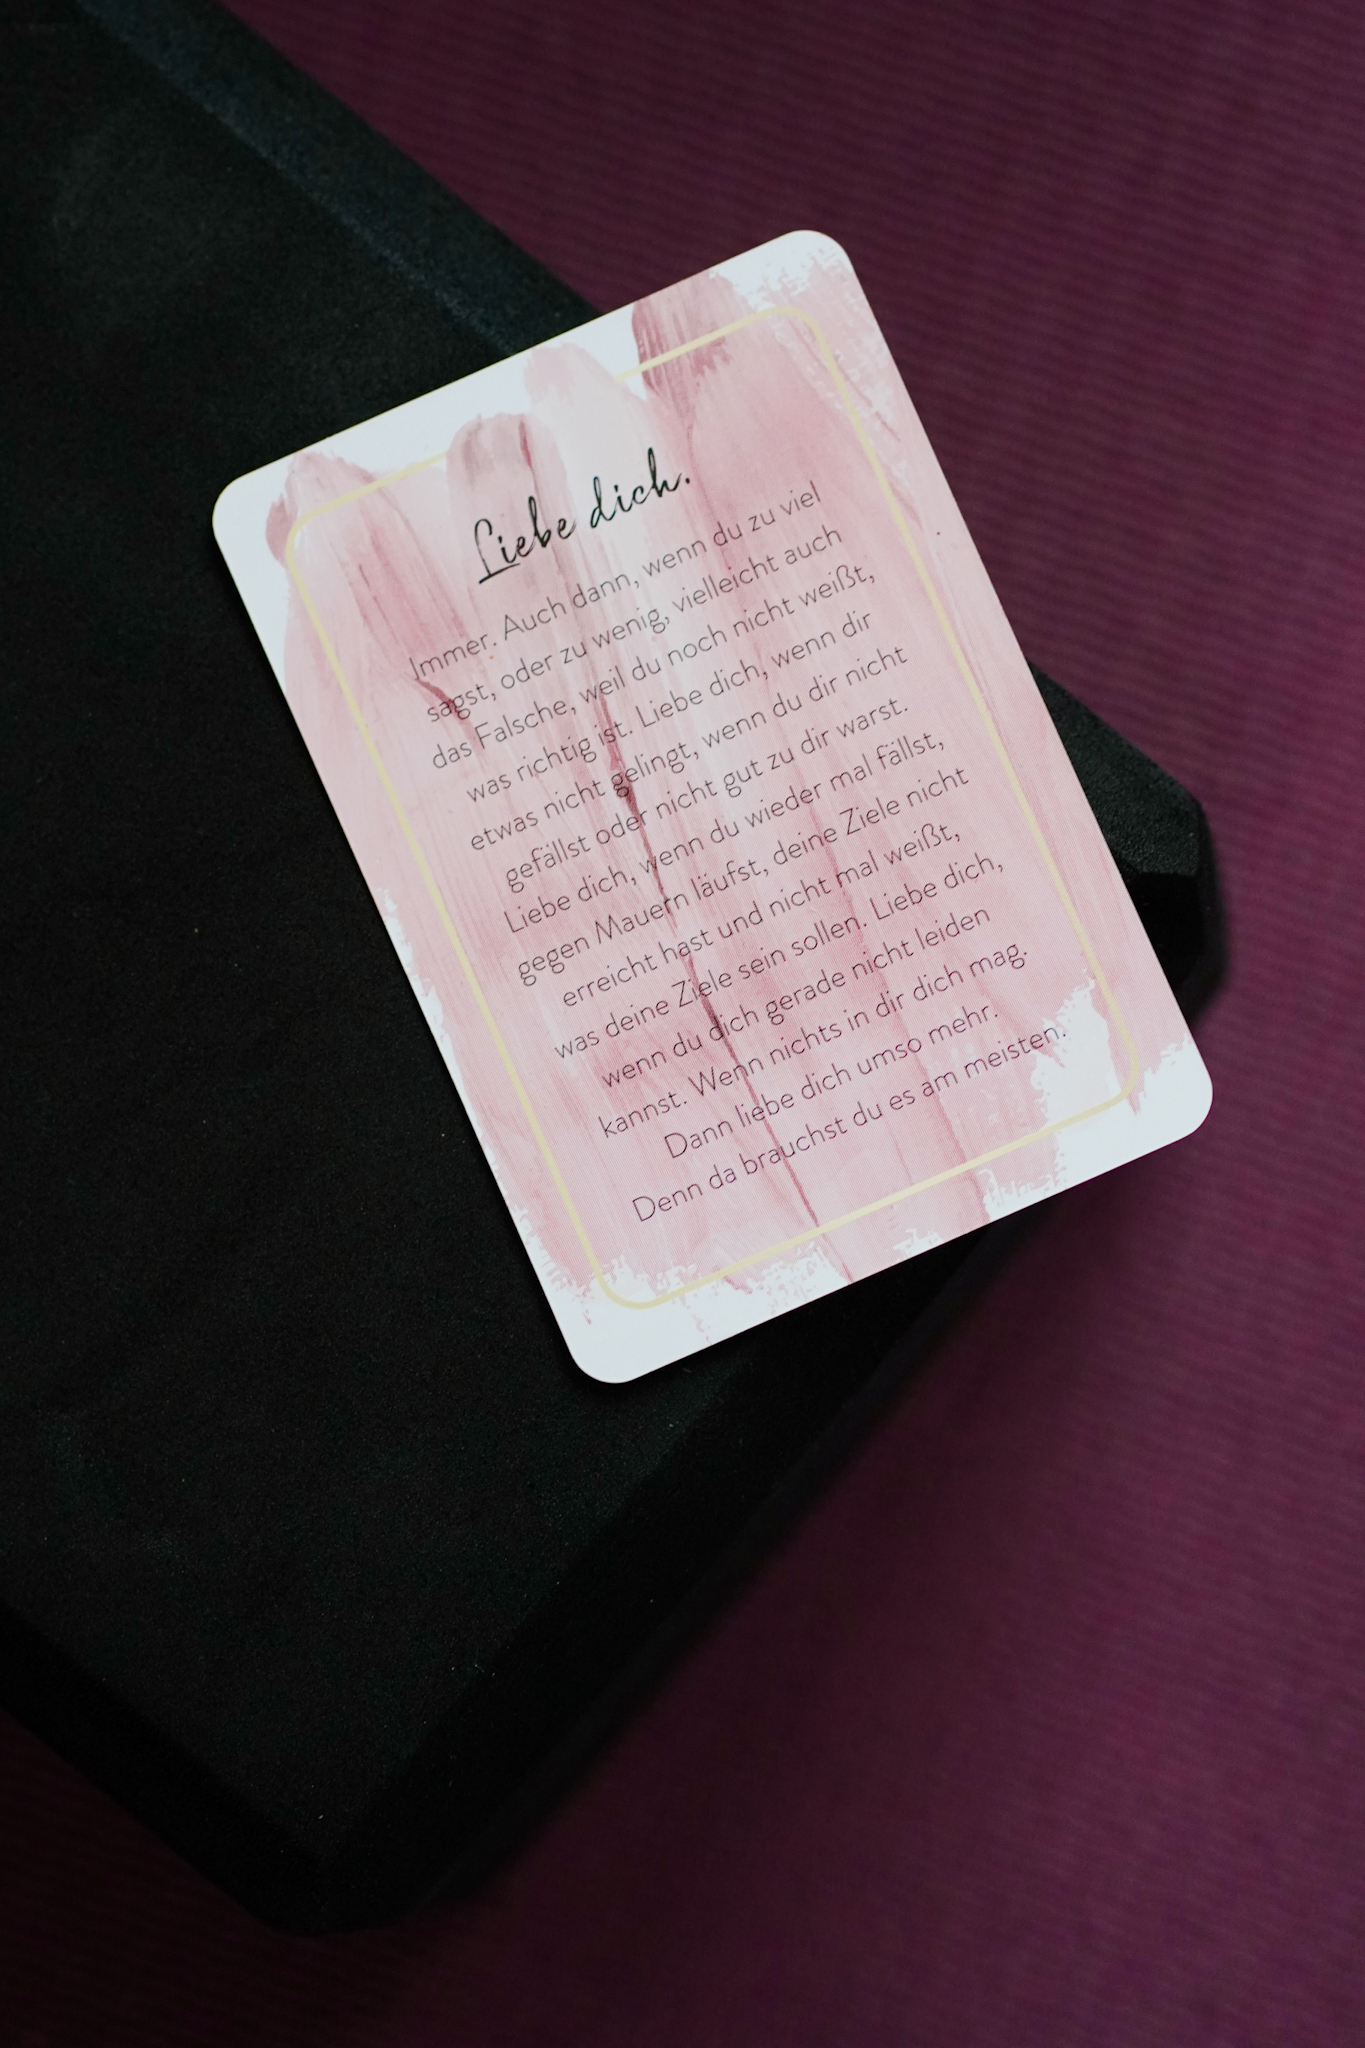 Liebe dich.
Immer. Auch dann, wenn du zu viel
sagst, oder zu wenig, vielleicht auch
das Falsche, weil du noch nicht weißt,
was richtig ist. Liebe dich, wenn dir
etwas nicht gelingt, wenn du dir nicht
gefällst oder nicht gut zu dir warst.
Liebe dich, wenn du wieder mal fällst,
gegen Mauern läufst, deine Ziele nicht
erreicht hast und nicht mal weißt,
was deine Ziele sein sollen. Liebe dich,
wenn du dich gerade nicht leiden
kannst. Wenn nichts in dir dich mag.
Dann liebe dich umso mehr.
Denn da brauchst du es am meisten.